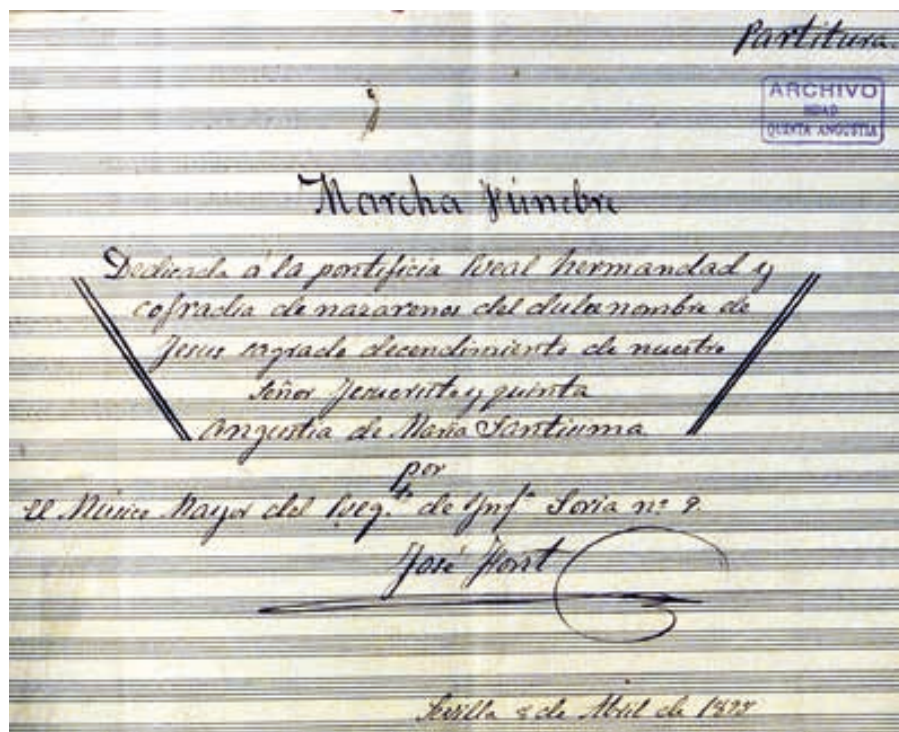 Partitura.
ARCHIVO
HDAD
QUINTA ANGUSTIA
Marcha Fúnebre
Dedicada á la pontificia Real hermandad y
cofradia de nazarenos del dulce nombre de
Jesus sagrado decendimiento de nuestro
Señor Jesucristo y quinta
Angustia de Maria Santisima
por
El Músico Mayor del Reg.to de Ynf.a Soria nº 9.
José Font
Sevilla 8 de Abril de